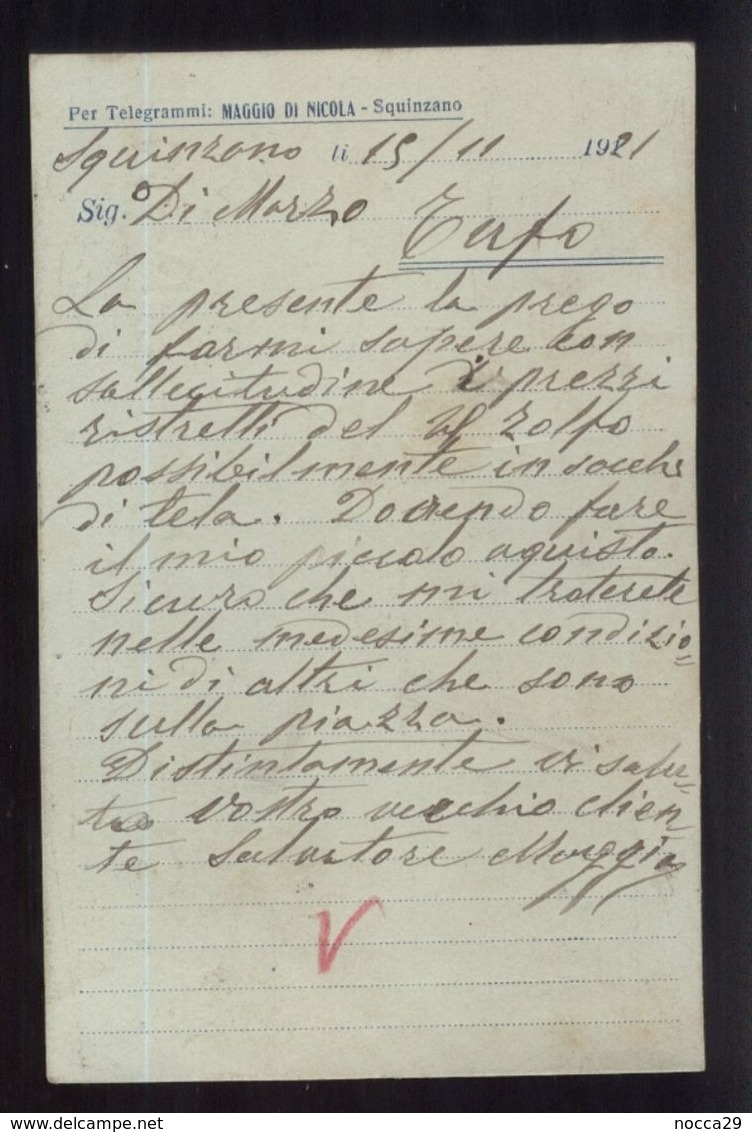 Per Telegrammi: MAGGIO DI NICOLA - Squinzano
Squinzano li 15/11 1921
Sig. Di Marzo
La presente la prego
di farmi sapere con
sollecitudine i prezzi
ristretti del zolfo
possibilmente in sacchi
di tela. Dovendo fare
il mio piccolo aquisto.
Sicuro che mi traterete
nelle medesime condizio=
ni di altri che sono
sulla piazza.
Distintamente vi salu=
to vostro vecchio clien=
te Salvatore Maggio
V
www.delcampe.net
nocca29